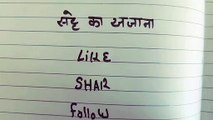 सट्टे का खजाना
LiKE
SHAR
Follow